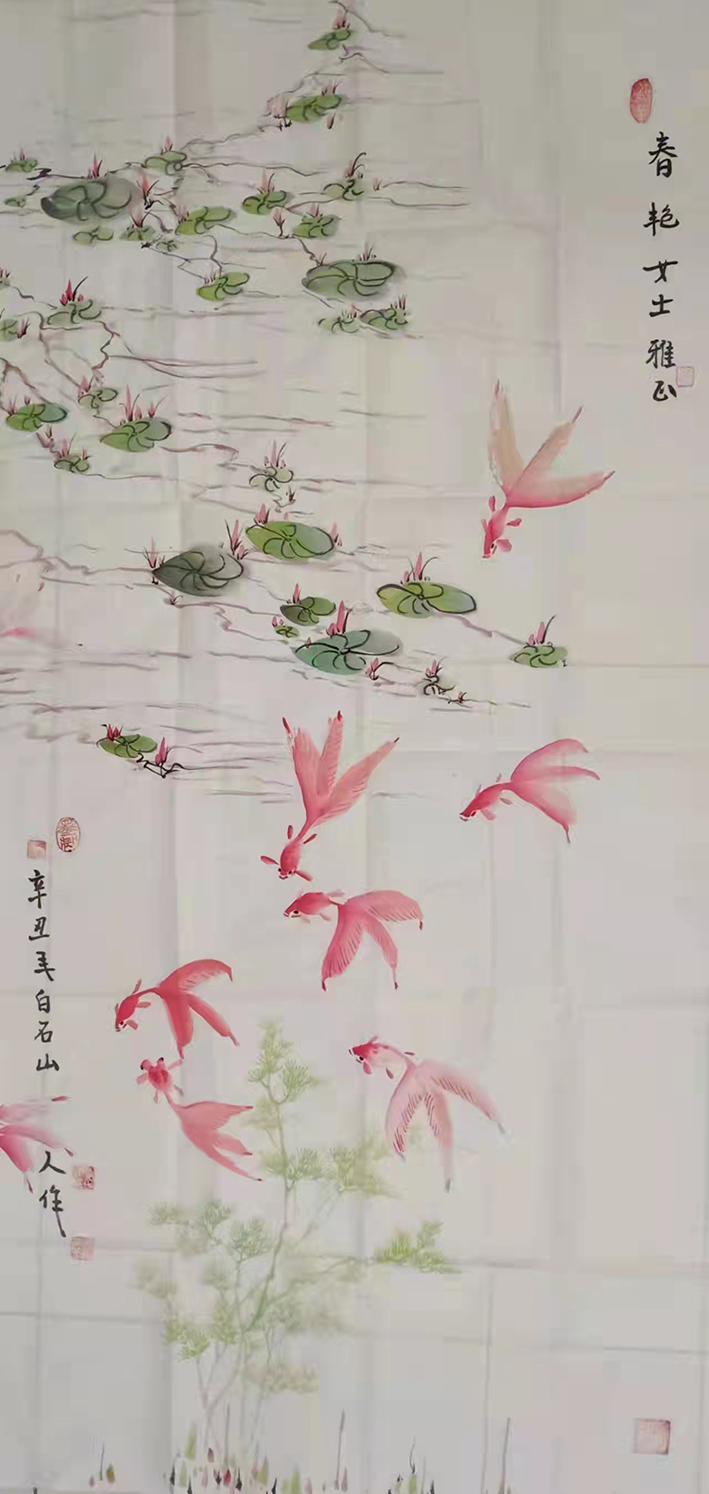 春艳女士雅正
辛丑年白石山人作